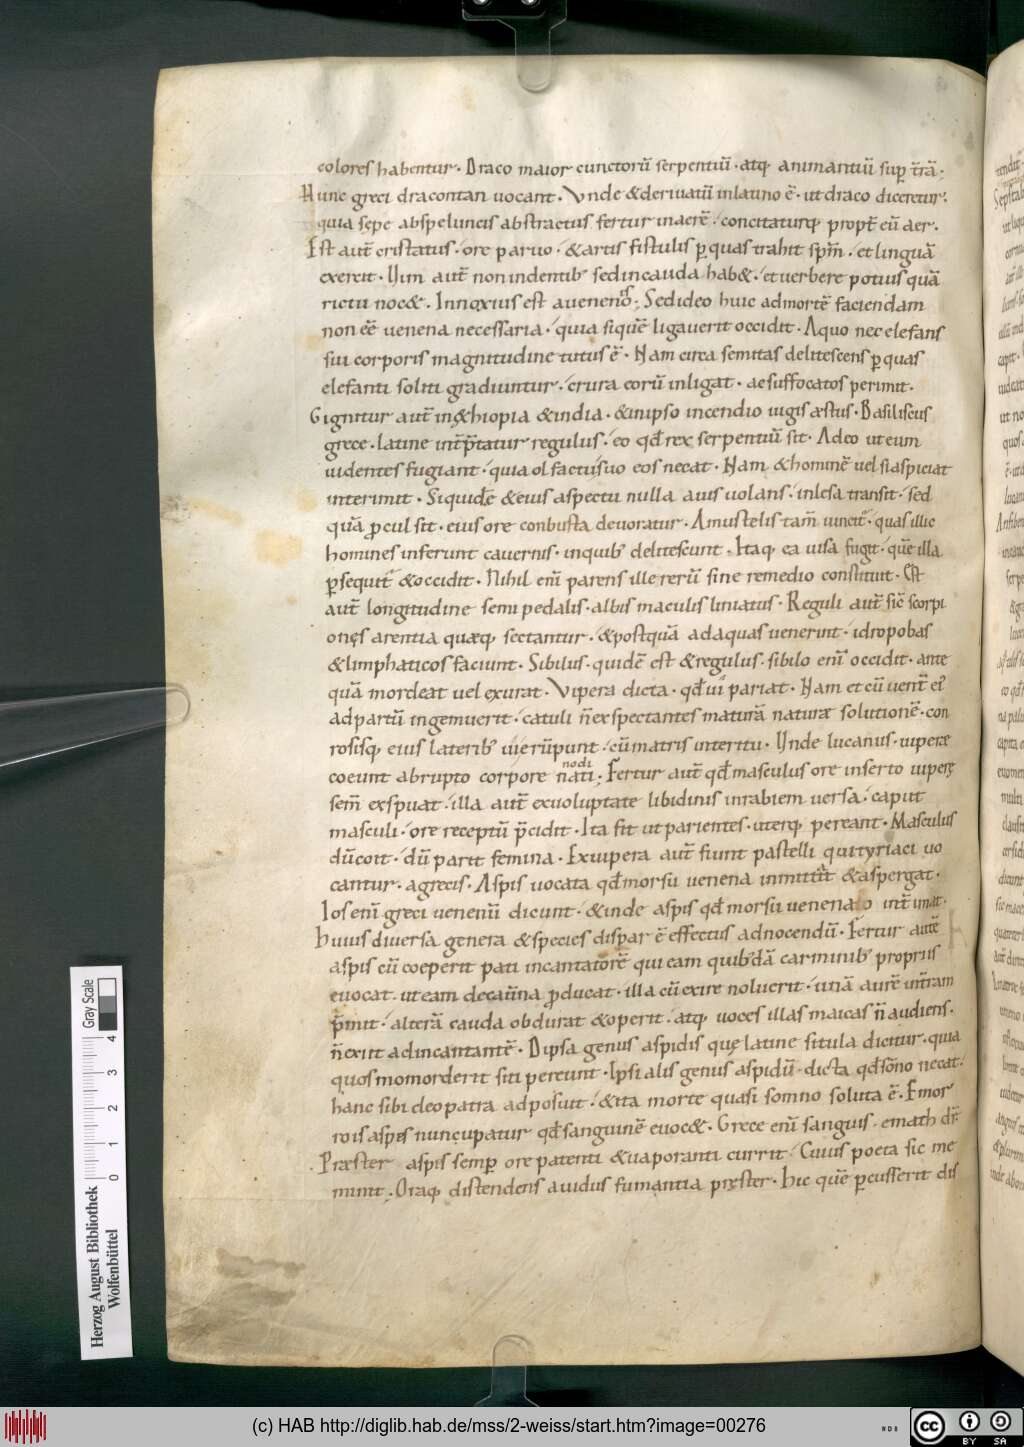 colores habentur · Draco maior cunctorū serpentiū · atq; animantiū sup t̄rā ·
Hunc greci dracontan uocant · Vnde & deriuatū in latino ē · ut draco diceretur ·
quia sępe ab speluncis abstractus fertur in aerē · concitaturq; propt̄ eū aer ·
Est aut̄ cristatus · ore paruo · & artis fistulis p quas trahit sp̄m · et linguā
exerit · Uim aut̄ non in dentib; sed in cauda hab& · et uerbere potius quā
rictu noc& · Innoxius est a uenenis · Sed ideo huic ad mortē faciendam
non eē uenena necessaria · quia si quē ligauerit occidit · A quo nec elefans
sui corporis magnitudine tutus ē · Nam circa semitas delitescens p quas
elefanti soliti gradiuntur · crura corū inligat · ac suffocatos perimit ·
Gignitur aut̄ in ę&hiopia & india · & in ipso incendio iugis æstus · Basiliscus
grece · latine int̄p̄tatur regulus · eo qd̄ rex serpentiū sit · Adeo ut eum
uidentes fugiant · quia olfactu suo eos necat · Nam & hominē uel si aspiciat
interimit · Siquidē & eius aspectu nulla auis uolans · inlesa transit · sed
quā procul sit · eius ore conbusta deuoratur · A mustelis tam̄ uincit̄ · quas illic
homines inferunt cauernis · in quib; delitescunt · Itaq; ea uisa fugit · quē illa
p sequit̄ & occidit · Nihil eni parens ille rerū sine remedio constituit · Est
aut̄ longitudine semipedalis · albis maculis liniatus · Reguli aut̄ sic̄ scorpi
ones arentia quæq; sectantur · & postquā ad aquas uenerint · idropobas
& limphaticos faciunt · Sibilus · quidē est & regulus · sibilo eni occidit · ante
quā mordeat uel exurat · Vipera dicta · qd̄ ui pariat · Nam et cū uent̄ ei;
ad partū ingemuerit · catuli n̄ exspectantes maturā naturæ solutionē · con
rosisq; eius laterib; ui erūpunt · cū matris interitu · Unde lucanus · uiperæ
nodi
coeunt abrupto corpore nati · Fertur aut̄ qd̄ masculus ore inserto uiperę
sem̄ exspuat · illa aut̄ ex uoluptate libidinis in rabiem uersa · caput
masculi · ore receptū p̄cidit · Ita fit ut parientes · uterq; pereant · Masculus
dū coit · dū parit femina · Ex uipera aut̄ fiunt pastelli qui tyriaci uo
cantur · a grecis · Aspis uocata qd̄ morsu uenena inmittit & aspergat ·
Ios eni greci uenenū dicunt · & inde aspis qd̄ morsu uenenato int̄imit ·
Huius diuersa genera & species dispar ē effectus ad nocendū · Fertur autē
aspis cū coeperit pati incantatorē qui eam quib;dā carminib; propriis
euocat · ut eam de cauerna producat · illa cū exire noluerit · unā aurē ad t̄ram
p̄mit · alterā cauda obdurat & operit · atq; uoces illas maicas n̄ audiens ·
n̄ exiit ad incantantē · Dipsa genus aspidis quę latine situla dicitur · quia
quos momorderit siti pereunt · Ipsialis genus aspidū · dicta qd̄ sōno necat ·
hanc sibi cleopatra adposuit · & ita morte quasi somno soluta ē · Emor
rois aspis nuncupatur qd̄ sanguinē euoc& · Grece eni sanguis · emath dr̄ ·
Præster aspis semp ore patenti & uaporanti currit · Cuius poeta sic me
minit · Oraq; distendens auidus fumantia pręster · Hic quē pcusserit dis
Gray Scale
0 1 2 3 4
Herzog August Bibliothek
Wolfenbüttel
(c) HAB http://diglib.hab.de/mss/2-weiss/start.htm?image=00276
cc BY SA